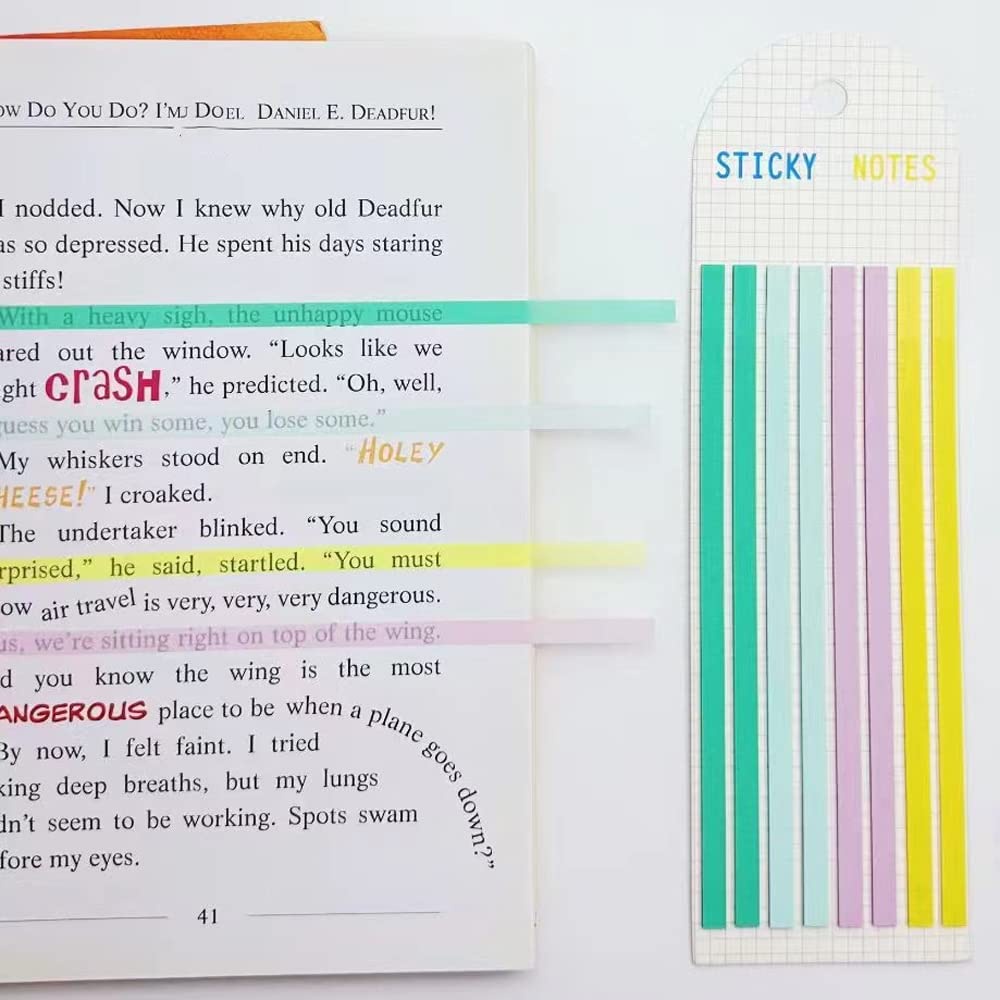 OW DO YOU DO? I'MJ DOEL DANIEL E. DEADFUR!
I nodded. Now I knew why old Deadfur
as so depressed. He spent his days staring
stiffs!
With a heavy sigh, the unhappy mouse
ared out the window. “Looks like we
ght CRASH,” he predicted. “Oh, well,
guess you win some, you lose some.”
My whiskers stood on end. “HOLEY
HEESE!” I croaked.
The undertaker blinked. “You sound
rprised,” he said, startled. “You must
ow air travel is very, very, very dangerous.
us, we're sitting right on top of the wing.
d you know the wing is the most
ANGEROUS place to be when a plane goes down?”
By now, I felt faint. I tried
king deep breaths, but my lungs
dn't seem to be working. Spots swam
fore my eyes.
41
STICKY NOTES